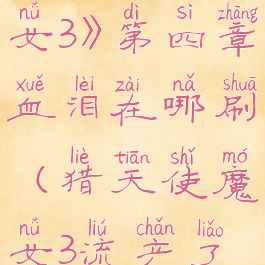 nǚ dì sì zhāng
女3》第四章
xuě lèi zài nǎ shuā
血泪在哪刷
liè tiān shǐ mó
（猎天使魔
nǚ liú chǎn liǎo
女3流产了